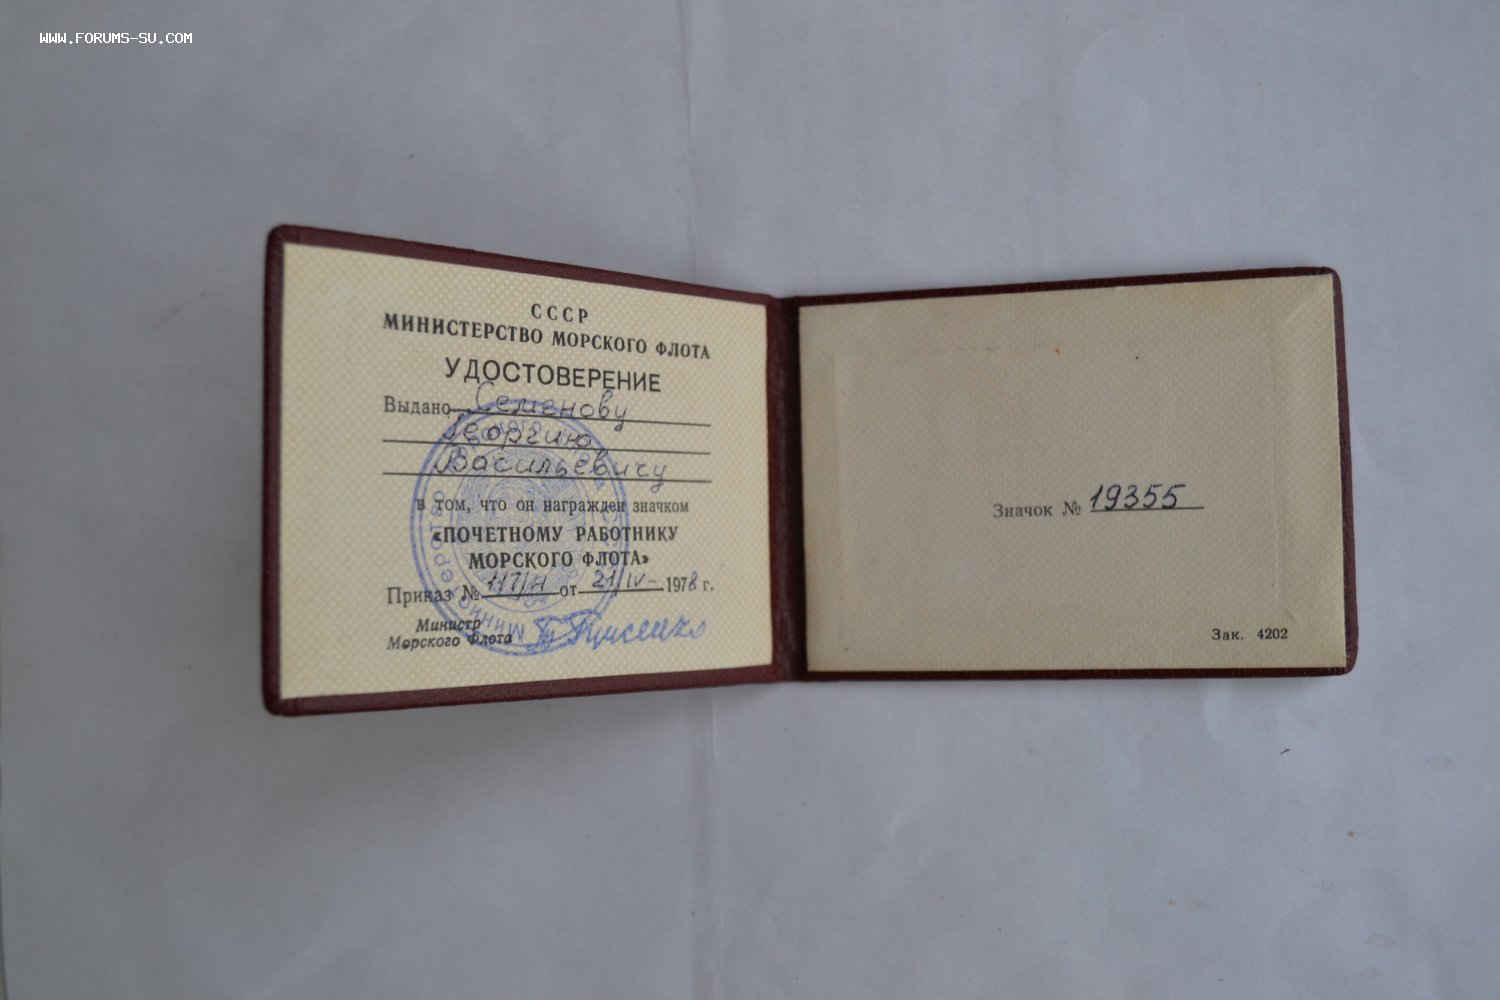 WWW.FORUMS-SU.COM
СССР
МИНИСТЕРСТВО МОРСКОГО ФЛОТА
УДОСТОВЕРЕНИЕ
Выдано Семенову
Георгию
Васильевичу
в том, что он награжден значком
«ПОЧЕТНОМУ РАБОТНИКУ
МОРСКОГО ФЛОТА»
Приказ № от 21/IV- 1978 г.
Министр
Морского Флота
Значок № 19355
Зак. 4202